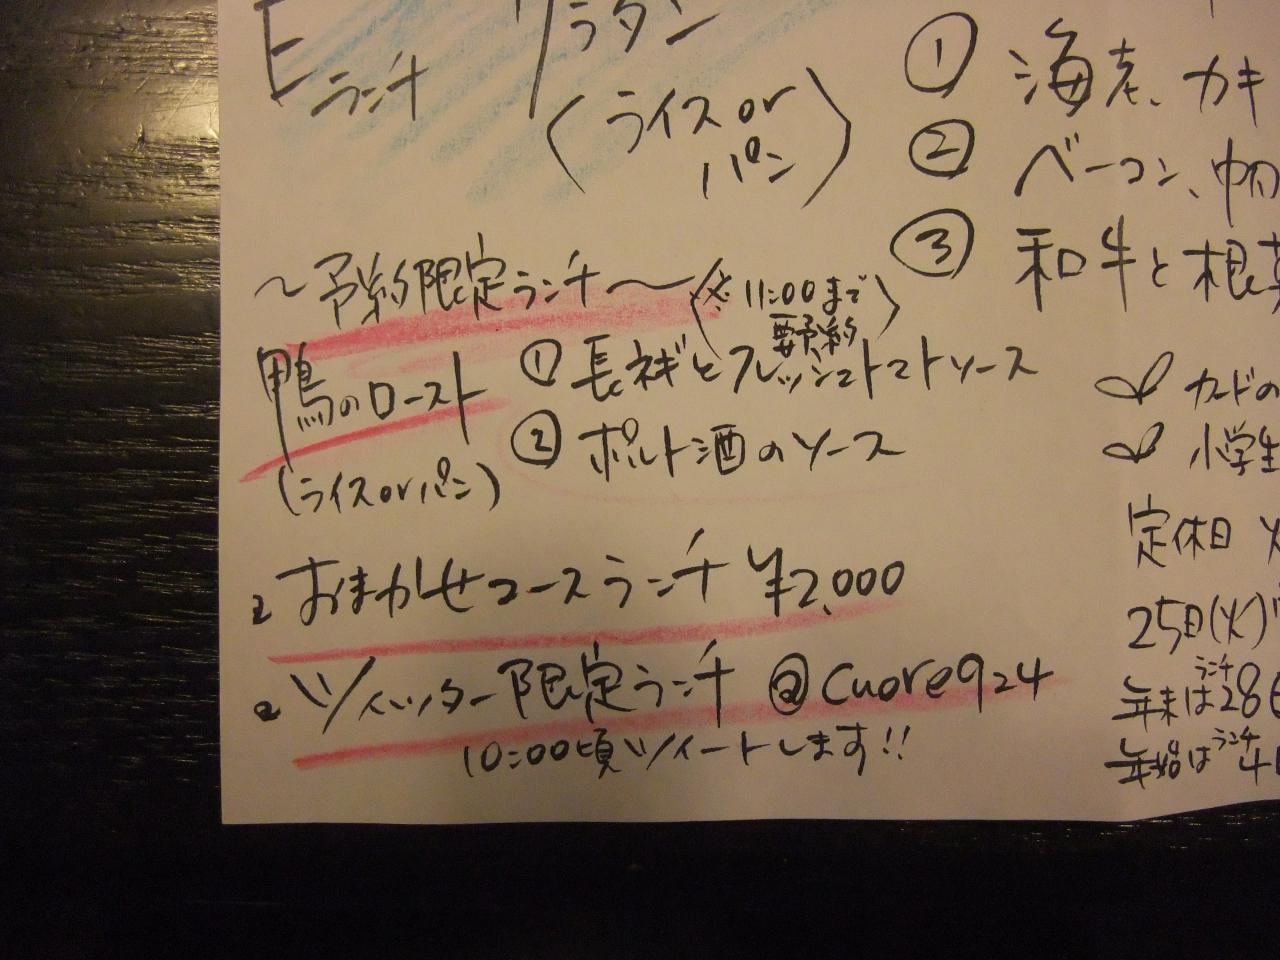 E ランチ
グラタン
(ライスor
パン)
① 海老、カキ
② ベーコン、
③ 和牛と根菜
〜予約限定ランチ〜
(※11:00まで
要予約)
鴨のロースト
(ライスorパン)
① 長ネギとフレッシュトマトソース
② ポルト酒のソース
おまかせコースランチ ¥2,000
ツイッター限定ランチ @cuore924
10:00頃ツイートします!!
カードの
小学生
定休日 火
25日(火)
年末はランチ28日
年始はランチ4日